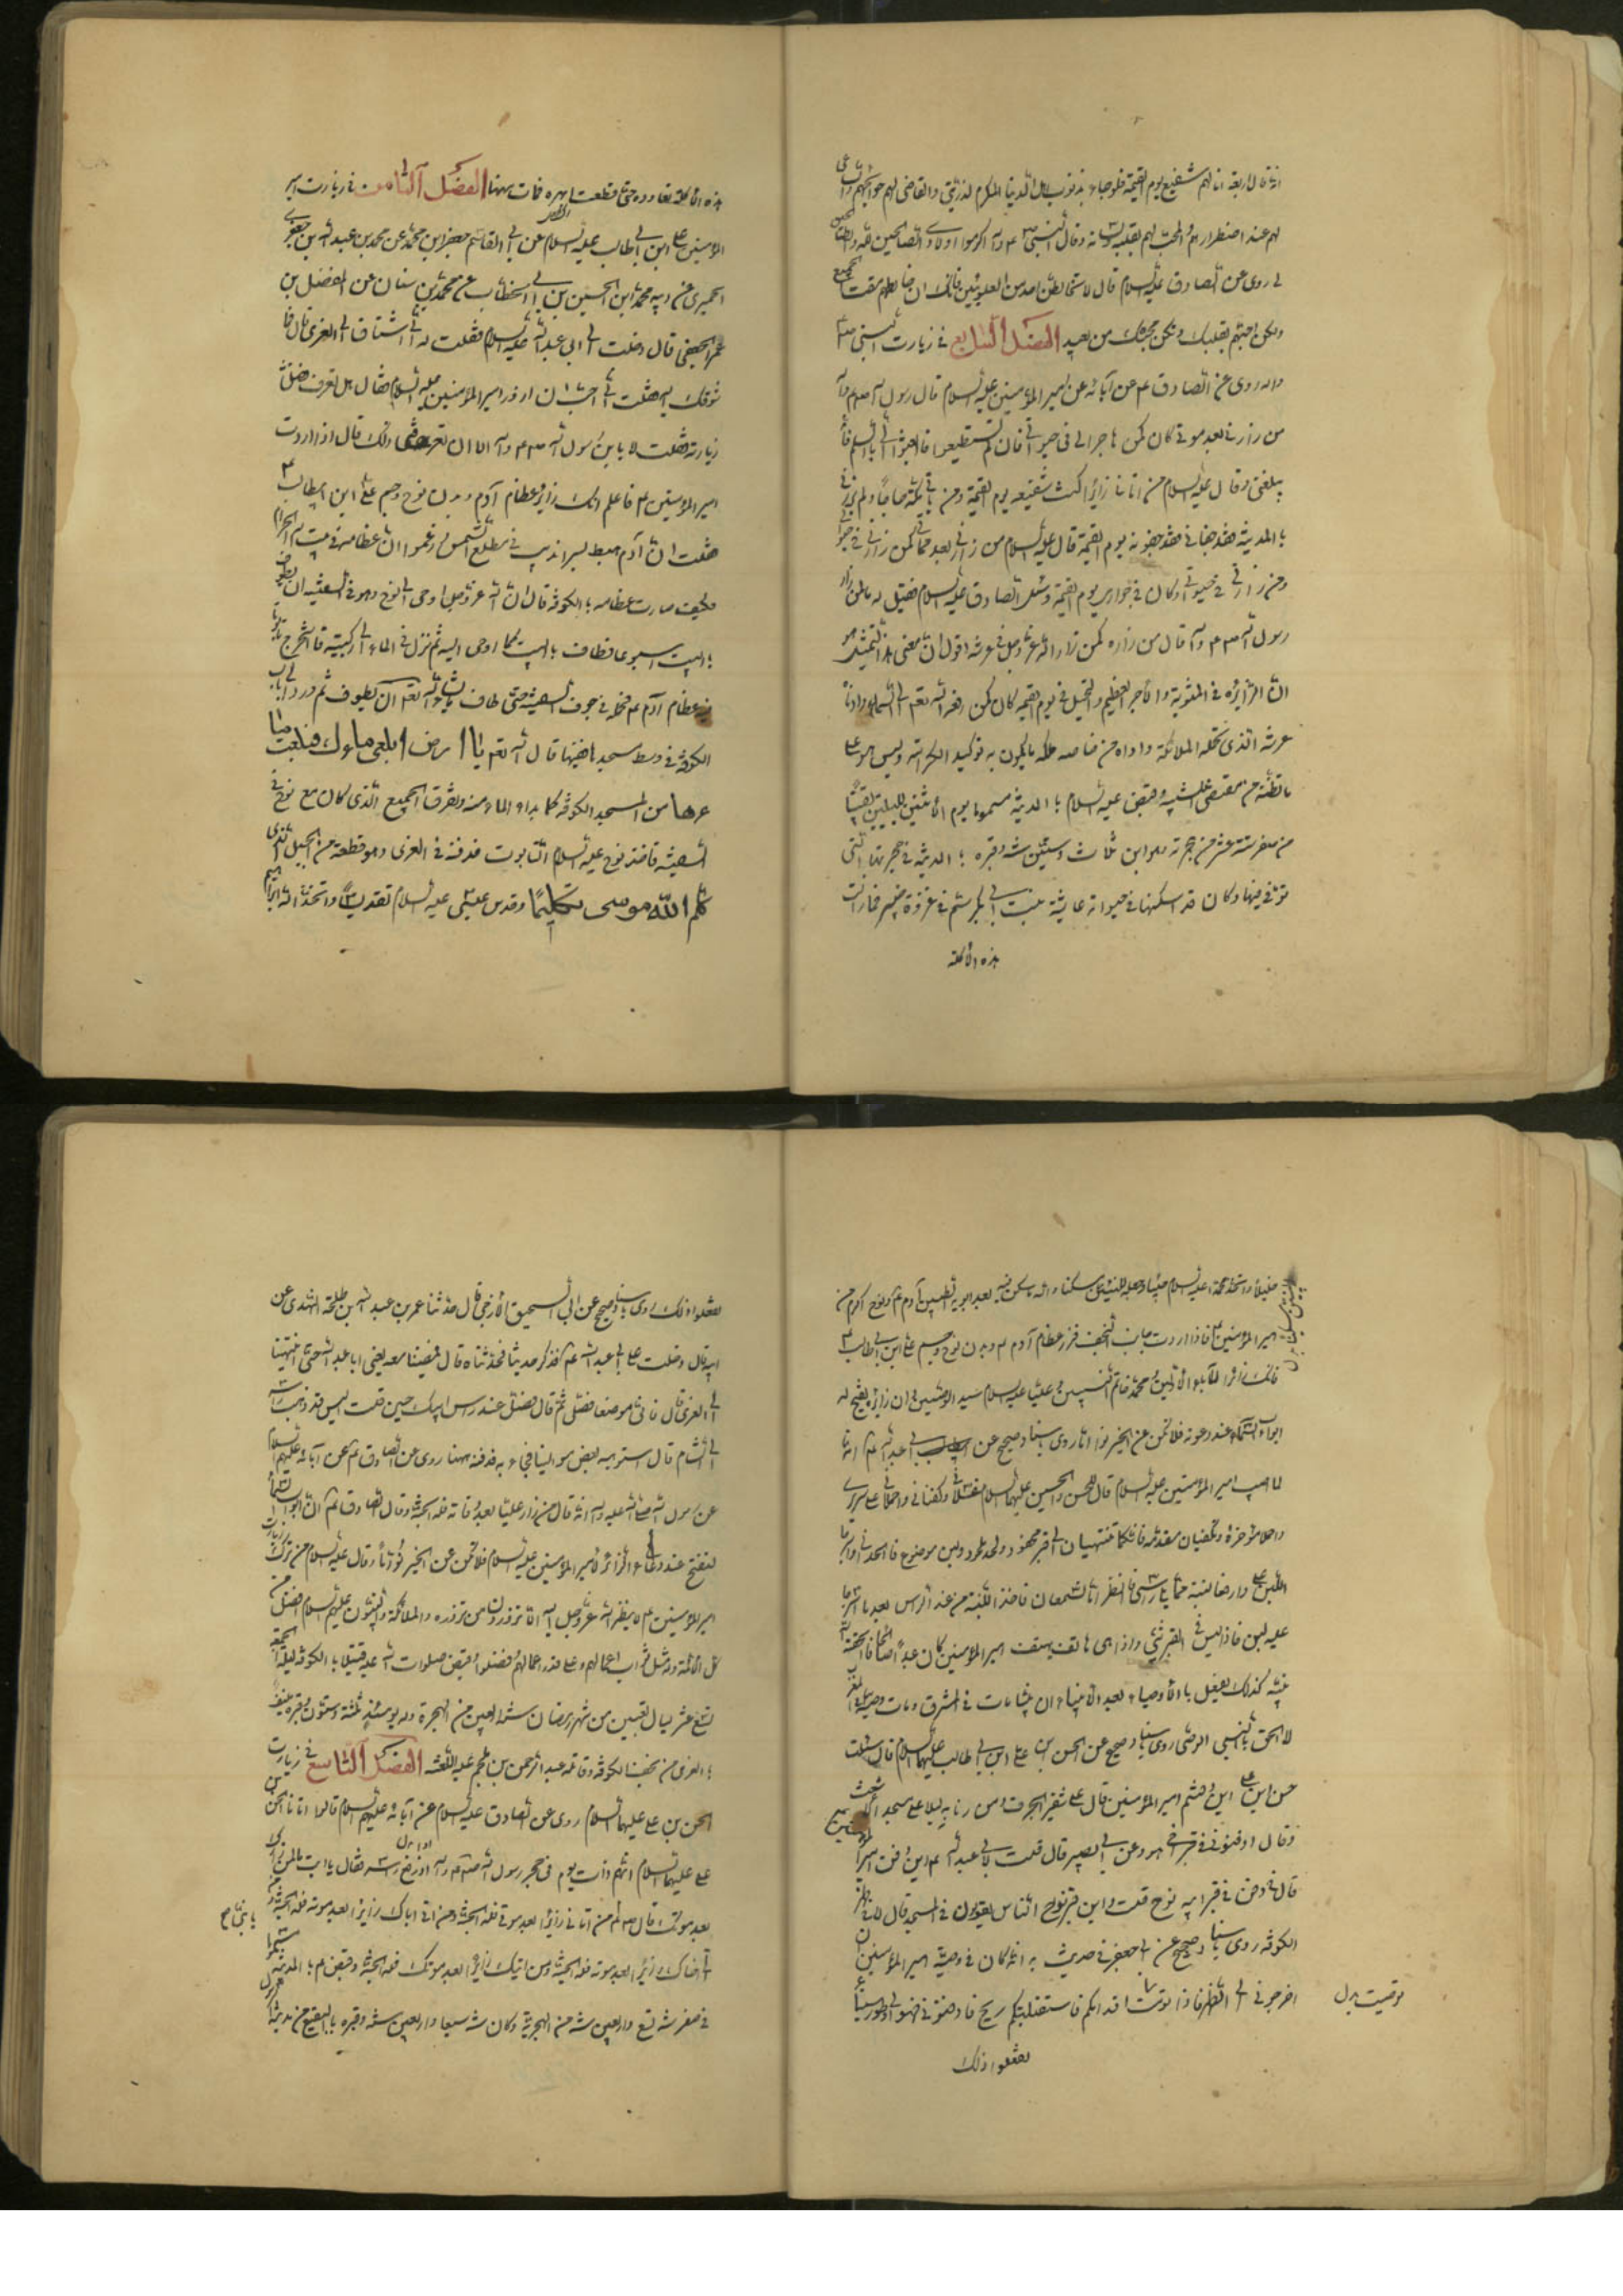 انه قال اربعة انا لهم شفيع يوم القيمة ولو جاءوا بذنوب اهل الدنيا المكرم لذريتي والقاضي لهم حوائجهم والساعي
لهم عند اضطرارهم والمحب لهم بقلبه ولسانه وقال النبي ص اكرموا اولادي الصالحين لله والطالحين
لي روي عن الصادق عليه السلام قال لا تخالطن احد من العلويين فانك ان خالطتهم مقت الجميع
ولكن احبهم بقلبك وليكن محبتك من بعيد الفصل السابع في زيارت النبي صلى
واله روي عن الصادق ع عن آبائه عن امير المؤمنين عليه السلام قال رسول الله صلعم وآله
من زارني بعد موتي كان كمن هاجر الي في حيوتي فان لم تستطيعوا فابعثوا الي بالسلام فانه
يبلغني وقال عليه السلام من اتاني زائرا كنت شفيعه يوم القيمة ومن اتى مكة حاجا ولم يزرني
بالمدينة فقد جفاني فقد جفوته يوم القيمة قال عليه السلام من زارني بعد مماتي كمن زارني في حيوتي
ومن زارني في حيوتي وكان في جواري يوم القيمة وسئل الصادق عليه السلام فقيل له ما لمن زار
رسول الله صلعم وآله قال من زاره كمن زار الله عز وجل في عرشه اقول ان معنى هذا التمثيل هو
ان الزائره في المثوبة والاجر العظيم والتبجيل في يوم القيمة كان كمن رفعه الله تعم الى السماء وادناه
عرشه الذي تحمله الملائكة واراه من خاصة ملكه ما يكون به توكيد الكرامة وليس هو على
ما تظنه من مقتضى التشبيه وقبض عليه السلام بالمدينة مسموما يوم الاثنين لليلتين بقيتا
من صفر سنة عشر من هجرته وهو ابن ثلاث وستين سنة وقبره بالمدينة في حجرته التي
توفي فيها وكان قد اسكنها في حيواته عايشة بنت ابي بكر سم في غزوة خيبر فما زالت
هذه الاكلة
هذه الاكلة تعاوده حتى قطعت ابهره فمات منها الفصل الثامن في زيارت امير
المؤمنين علي ابن ابي طالب عليه السلام عن ابي القاسم جعفر ابن محمد عن محمد بن عبد الله بن جعفر
الحميري عن ابيه محمد ابن الحسين بن ابي الخطاب عن محمد بن سنان عن المفضل بن
عمر الجعفي قال دخلت الى ابي عبد الله عليه السلام فقلت له اني اشتاق الى الغري قال فما
شوقك اليه فقلت اني احب ان ازور امير المؤمنين عليه السلام فقال هل تعرف فضل
زيارته فقلت لا يا بن رسول الله ص وآله الا ان تعرفني ذلك قال اذا اردت
امير المؤمنين ع فاعلم انك زائر عظام آدم وبدن نوح وجسم علي ابن ابيطالب ع
فقلت ان آدم هبط بسرانديب في مطلع الشمس وزعموا ان عظامه في بيت الله الحرام
فكيف صارت عظامه بالكوفة قال ان الله عز وجل اوحى الى نوح وهو في السفينة ان يطوف
بالبيت اسبوعا فطاف بالبيت كما اوحى اليه ثم نزل في الماء الى ركبتيه فاستخرج تابوتا
فيه عظام آدم ع فحمله في جوف السفينة حتى طاف ما شاء الله تعم ان يطوف ثم ورد الى باب
الكوفة في وسط مسجدها ففيها قال الله تعم يا ارض ابلعي ماءك فبلعت ماءها
من المسجد الكوفة كما بدء الماء منه وتفرق الجميع الذي كان مع نوح في
السفينة فاخذ نوح عليه السلام التابوت فدفنه في الغري وهو قطعة من الجبل الذي
كلم الله موسى تكليما وقدس عيسى عليه السلام تقديسا واتخذ الله ابراهيم
خليلا واتخذ محمد عليه السلام حبيبا وجعله للنبيين مسكنا والله ما سكن فيه بعد ابويه الطيبين آدم ع ونوح اكرم من
امير المؤمنين ع فاذا اردت جانب النجف فزر عظام آدم ع وبدن نوح وجسم علي ابن ابي طالب ع
فانك زائر الآباء الاولين ومحمد خاتم النبيين وعليا عليه السلام سيد الوصيين وان زائره يفتح له
ابواب السماء عند دعوته فلا تكن عن الخير نواما روي باسناد صحيح عن ابي عبد الله ع انه
لما اصيب امير المؤمنين عليه السلام قال للحسن والحسين عليهما السلام غسلاني وكفناني واحملاني على سريري
واحملا مؤخره وتكفيان مقدمه فانكما تنتهيان الى قبر محفور ولحد ملحود ولبن موضوع فالحداني واشرجا
اللبن علي وارفعا لبنة مما يلي رأسي فانظرا ما تسمعان فاخذ اللبنة من عند الرأس بعد ما اشرجا
عليه اللبن فاذا ليس في القبر شيء واذا هي هاتف يهتف امير المؤمنين كان عبدا صالحا فالحقه الله
بنبيه كذلك يفعل بالاوصياء بعد الانبياء ان نبيا مات في المشرق ومات وصيه في المغرب
لالحق بالنبي الوصي روي باسناد صحيح عن الحسن بن علي ابن ابي طالب عليهما السلام قال سئلت
حسن ابن علي اين دفنتم امير المؤمنين قال على شفير الجرف ومررنا به ليلا على مسجد الاشعث
وقال ادفنوني في قبر اخي هود وعن ابي بصير قال قلت لابي عبد الله ع اين دفن امير المؤمنين
قال دفن في قبر ابيه نوح قلت واين قبر نوح الناس يقولون في المسجد قال لا في ظهر
الكوفة روي باسناد صحيح عن ابي جعفر في حديث به انه كان في وصية امير المؤمنين
اخرجوني الى الظهر فاذا تصوبت اقدامكم فاستقبلتكم ريح فادفنوني فهو اول طور سيناء
تصويت بدل
ففعلوا ذلك
ففعلوا ذلك روي باسناد صحيح عن ابي السحيق الارجي قال حدثنا عمر بن عبد الله بن طلحة النهدي عن
ابيه قال دخلت على ابي عبد الله ع فذكر حديثا فحدثناه قال فمضينا معه يعني ابا عبد الله حتى انتهينا
الى الغري قال فاتى موضعا فصلى ثم قال فصل عند رأس ابيك حسين قلت اليس قد ذهب برأسه
الى الشام قال استوهبه بعض موالينا فجاء به فدفنه ههنا روي عن الصادق ع عن آبائه عليهم السلام
عن رسول الله صلى الله عليه وآله انه قال من زار عليا بعد وفاته فله الجنة وقال الصادق ع ان ابواب السماء
لتفتح عند دعاء الزائر لامير المؤمنين عليه السلام فلا تكن عن الخير نواما وقال عليه السلام من ترك زيارت
امير المؤمنين ع لا ينظر الله عز وجل اليه الا تزورون من تزوره والملائكة والنبيون عليهم السلام افضل من
كل الائمة وله مثل ثواب اعمالهم وعلى قدر اعمالهم فضلوا وقبض صلوات الله عليه قتيلا بالكوفة ليلة الجمعة
لتسع عشر ليال بقين من شهر رمضان سنة اربعين من الهجرة وله يومئذ ثلثة وستون وقبره
بالغري من نجف الكوفة وقاتله عبد الرحمن بن ملجم عليه اللعنة الفصل التاسع في زيارت
الحسن بن علي عليهما السلام روي عن الصادق عليه السلام عن آبائه عليهم السلام قالوا اتانا الحسن بن
علي عليهما السلام انهم ذات يوم في حجر رسول الله صلعم وآله اذ رفع رأسه فقال يا ابت ما لمن زارك
بعد موتك قال صلعم من اتاني زائرا بعد موتي فله الجنة ومن اتى اباك زائرا بعد موته فله الجنة ومن
اتى اخاك زائرا بعد موته فله الجنة ومن اتيك زائرا بعد موتك فله الجنة وقبض ع بالمدينة مسموما
في صفر سنة تسع واربعين سنة من الهجرية وكان سنه سبعا واربعين سنة وقبره بالبقيع من مدينة